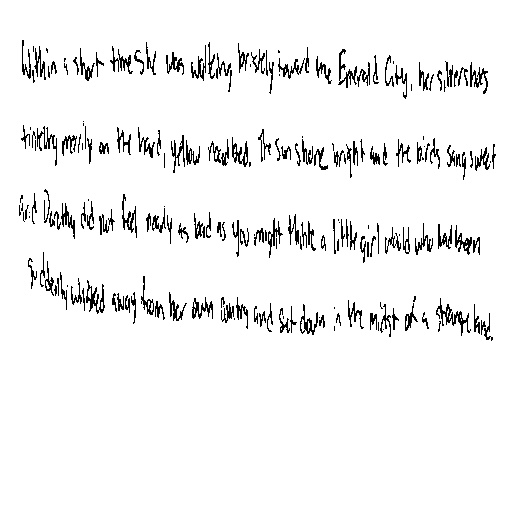 Within a short time she was walking briskly toward the Emerald City, her silver shoes
tinkling merrily on the hard, yellow roadbed. The sun shone bright and the birds sang sweet
and Dorothy did not feel nearly as bad as you might think a little girl would who had been
suddenly whisked away from her own country and set down in the midst of a strange land.